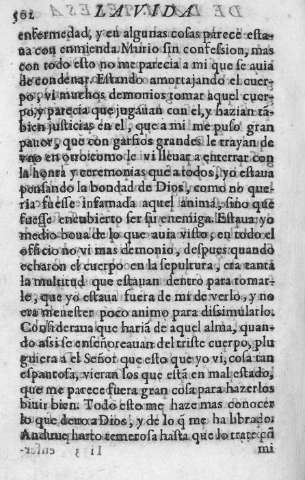 502 LA VIDA
enfermedad, y en algunas cosas parece esta-
ua con enmienda. Murio sin confession, mas
con todo esto no me parecia a mi que se auia
de condenar. Estando amortajando el cuer-
po, vi muchos demonios tomar aquel cuer-
po, y parecia que jugauan con el, y hazian tā-
bien justicias en el, que a mi me puso gran
pauor, que con garfios grandes le trayan de
vno en otro: como le vi lleuar a enterrar con
la honra y ceremonias que a todos, yo estaua
pensando la bondad de Dios, como no que-
ria fuesse infamada aquel anima, sino que
fuesse encubierto ser su enemiga. Estaua yo
medio boua de lo que auia visto, en todo el
officio no vi mas demonio, despues quando
echaron el cuerpo en la sepultura, era tanta
la multitud que estauan dentro para tomar-
le, que yo estaua fuera de mi de verlo, y no
era menester poco animo para dissimularlo.
Consideraua que harian de aquel alma, quan-
do assi se enseñoreauan del triste cuerpo, plu
guiera a el Señor que esto que yo vi, cosa tan
espantosa, vieran los que està en mal estado,
que me parece fuera gran cosa para hazerlos
biuir bien. Todo esto me haze mas conocer
lo que deuo a Dios, y de lo q̃ me ha librado.
Anduue harto temerosa hasta que lo traté cō
Ii 3 mi